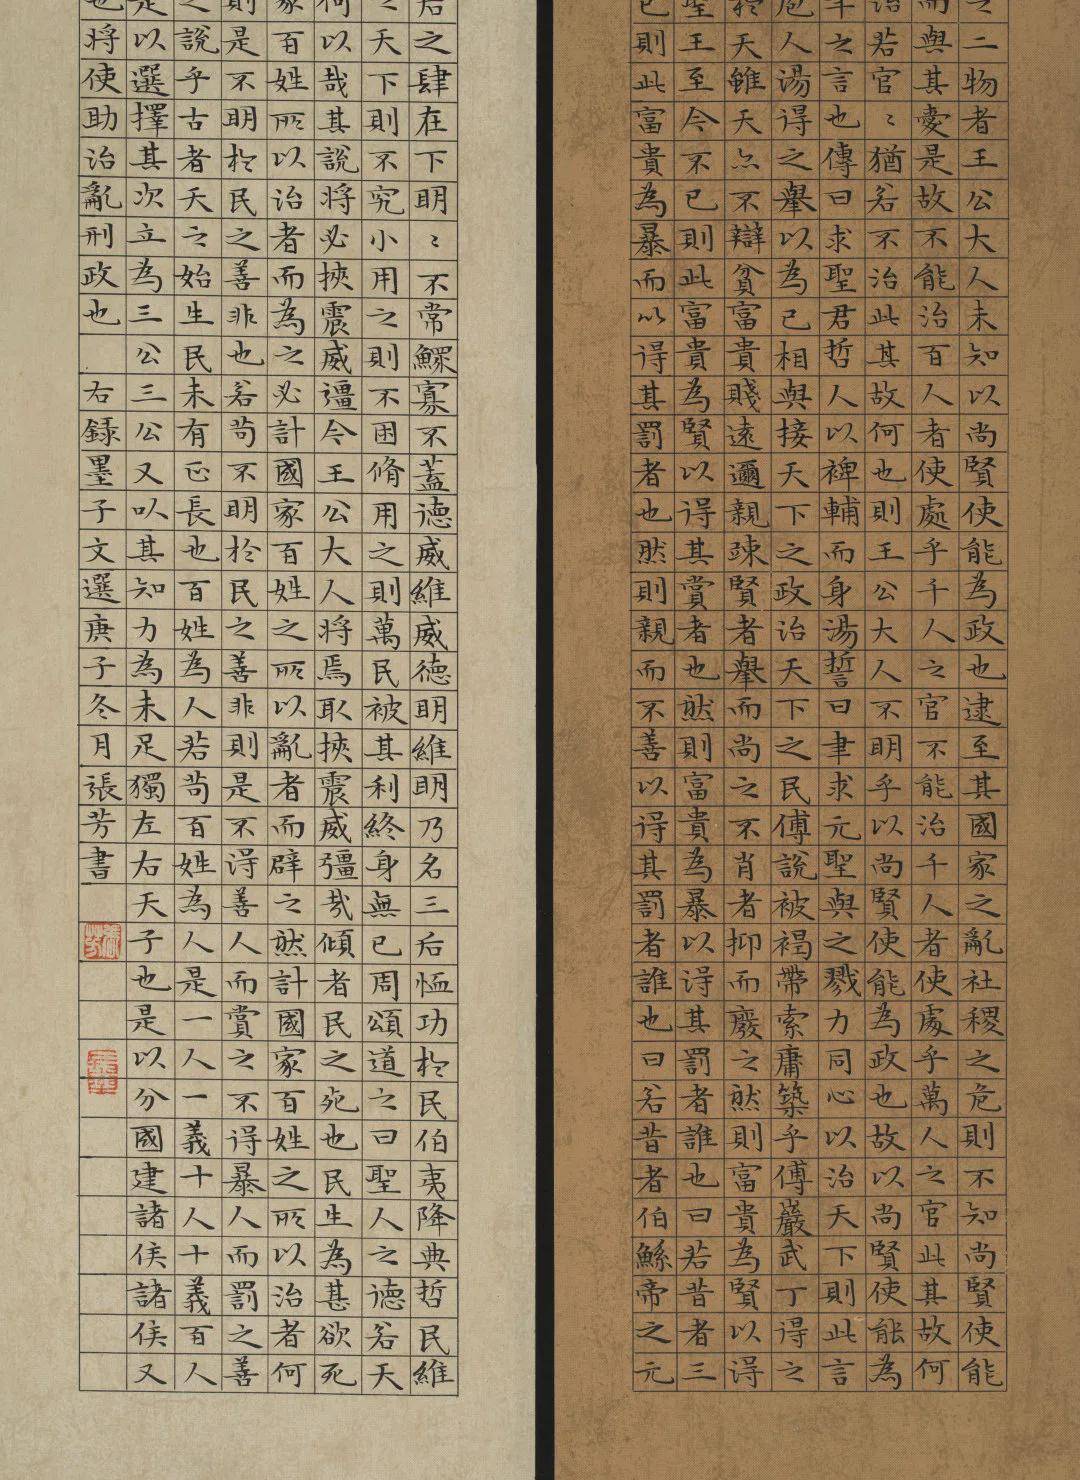 二物者王公大人未知以尚賢使能為政也逮至其國家之亂社稷之危則不知尚賢使能
而與其愛是故不能治百人者使處乎千人之官不能治千人者使處乎萬人之官此其故何
治若官〻猶若不治此其故何也則王公大人不明乎以尚賢使能為政也故以尚賢使能為
年之言也傳曰求聖君哲人以裨輔而身湯誓曰聿求元聖與之戮力同心以治天下則此言
庖人湯得之舉以為己相與接天下之政治天下之民傅說被褐帶索庸築乎傅巖武丁得之
於天雖天亦不辯貧富貴賤遠邇親疎賢者舉而尚之不肖者抑而廢之然則富貴為賢以得
聖王至今不已則此富貴為賢以得其賞者也然則富貴為暴以得其罰者誰也曰若昔者三
已則此富貴為暴而以得其罰者也然則親而不善以得其罰者誰也曰若昔者伯鯀帝之元
后之肆在下明〻不常鰥寡不蓋德威維威德明維明乃名三后恤功於民伯夷降典哲民維
之天下則不究小用之則不困脩用之則萬民被其利終身無已周頌道之曰聖人之德若天
何以哉其說將必挾震威彊今王公大人將焉取挾震威彊哉傾者民之死也民生為甚欲死
家百姓所以治者而為之必計國家百姓之所以亂者而辟之然計國家百姓之所以治者何
則是不明於民之善非也若苟不明於民之善非則是不得善人而賞之不得暴人而罰之善
之說乎古者天之始生民未有正長也百姓為人若苟百姓為人是一人一義十人十義百人
是以選擇其次立為三公三公又以其知力為未足獨左右天子也是以分國建諸侯諸侯又
也將使助治亂刑政也 右錄墨子文選庚子冬月張芳書
張芳